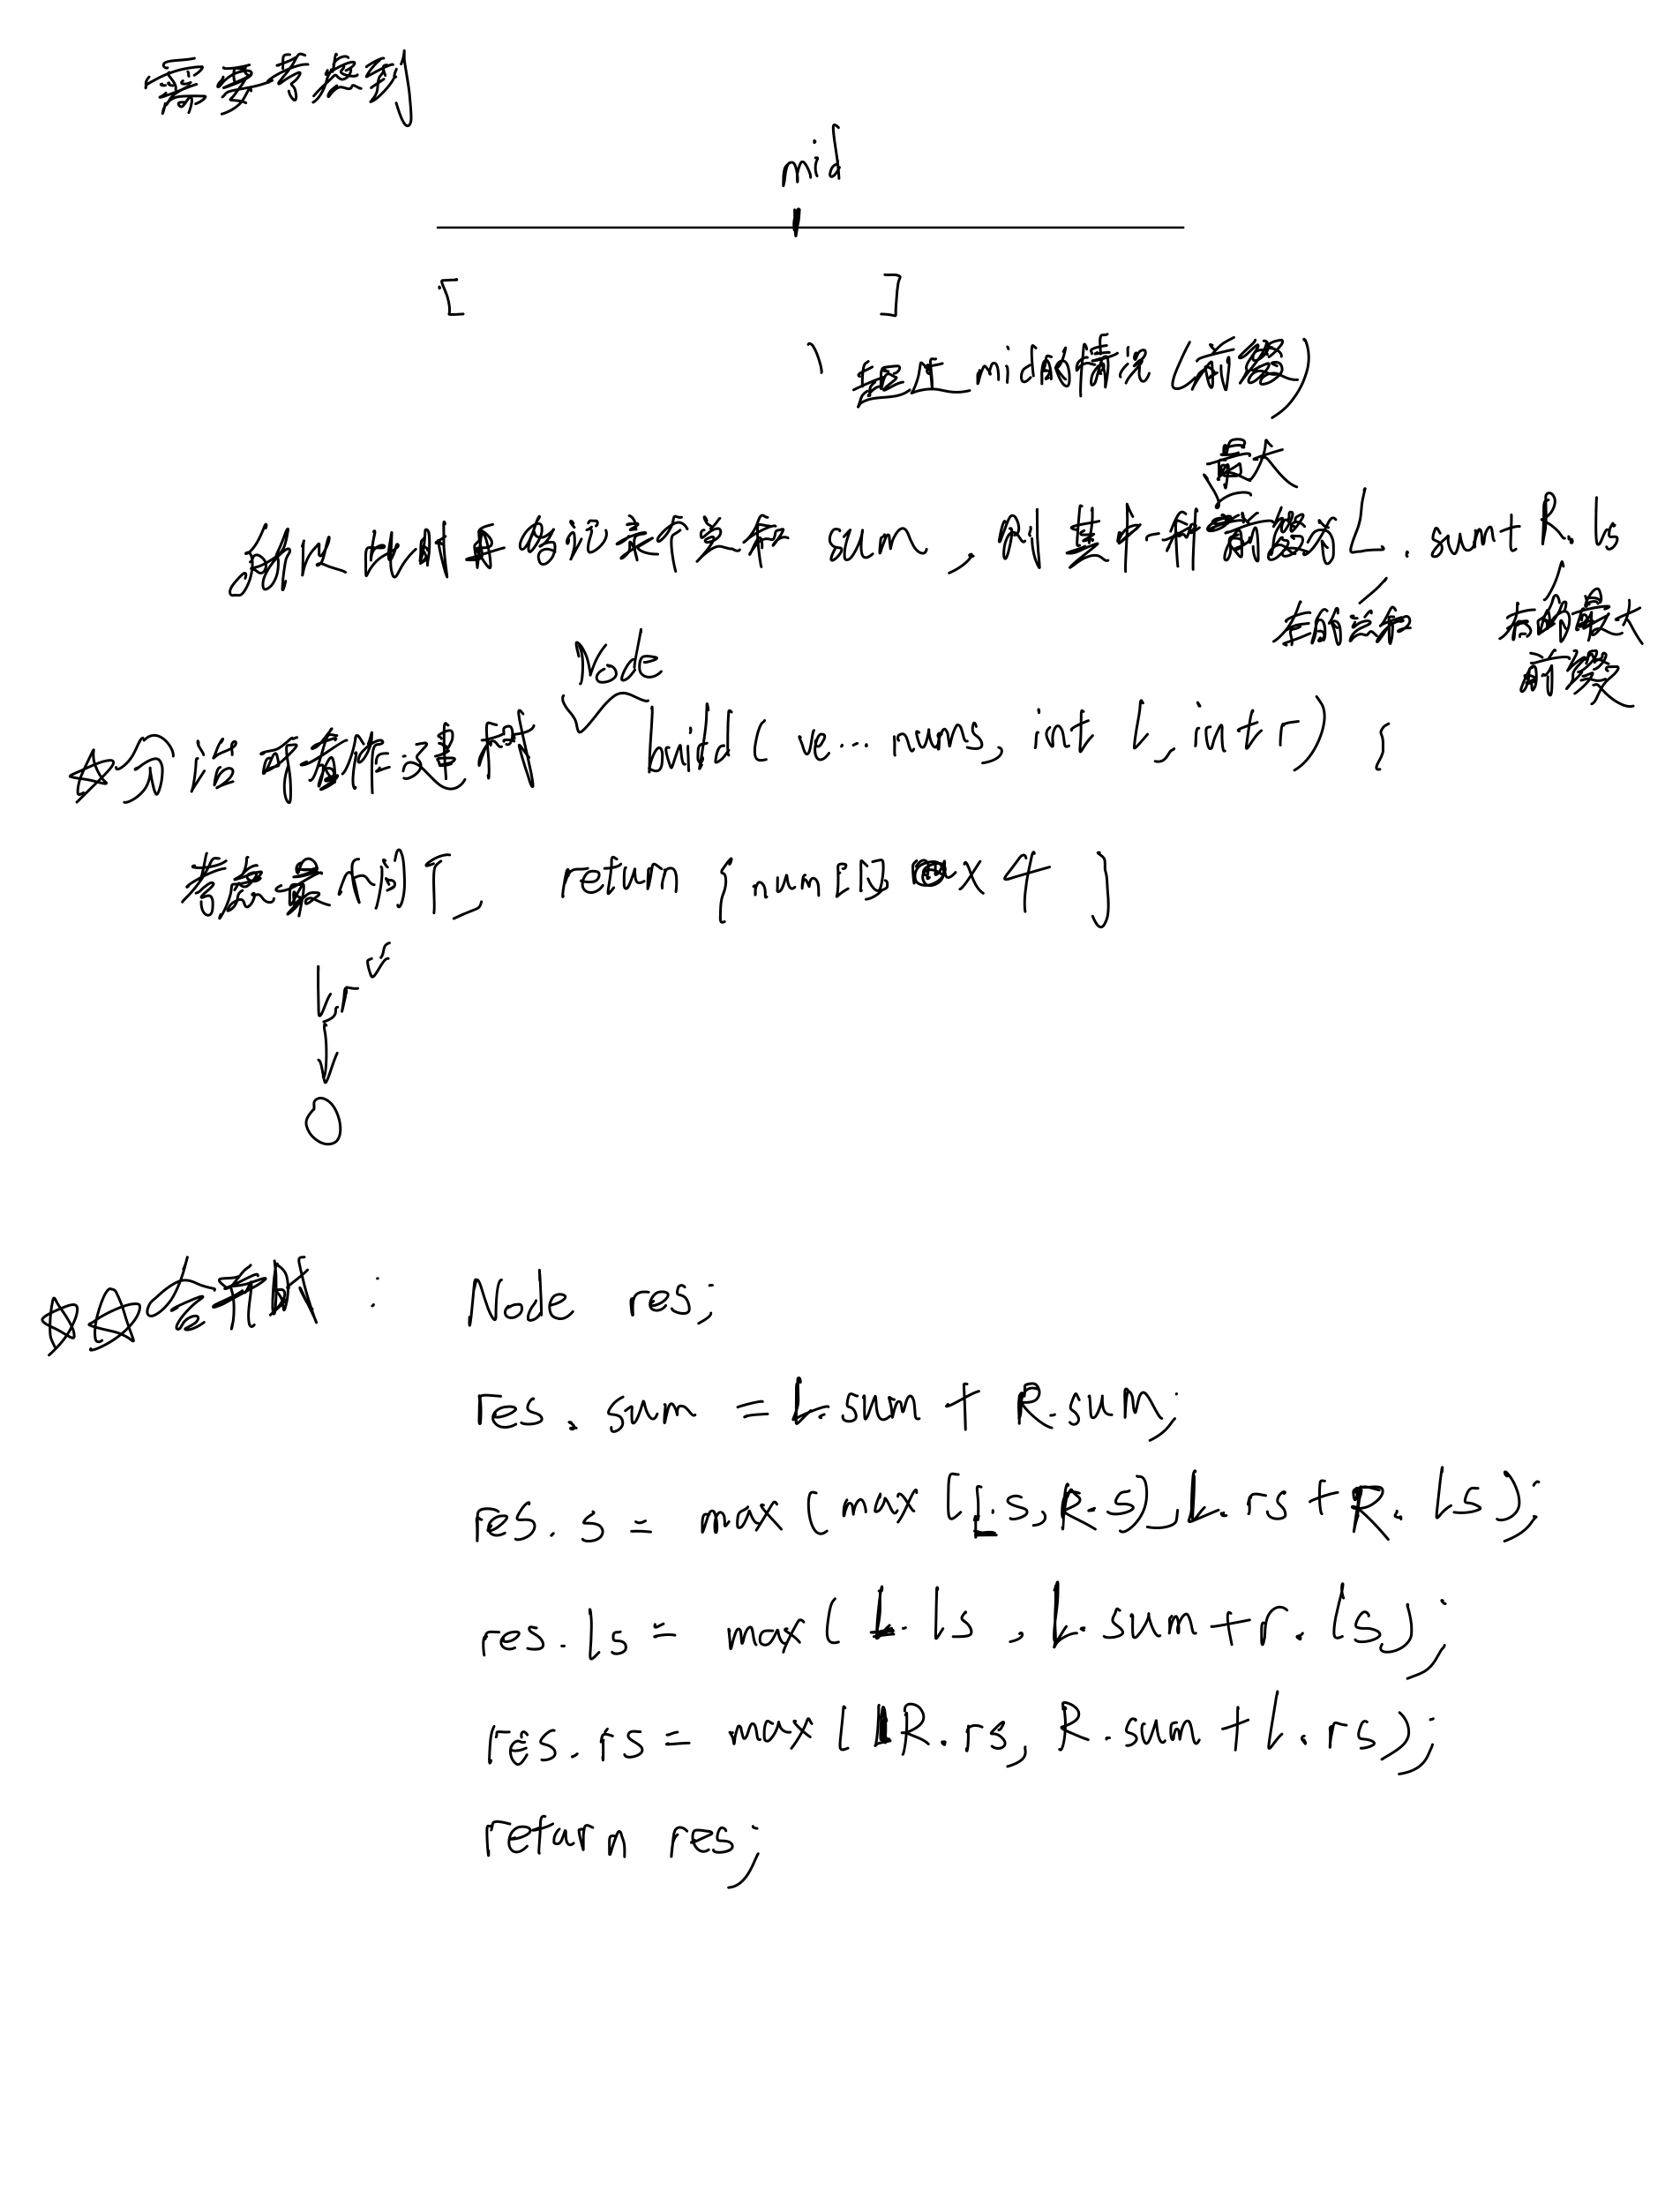 需要考虑到
mid
[ ]
超过mid的情况(前缀)
最大
所以此时再多记录个总和 sum , 则其中一种前缀为L.sum+R.ls
左的总和 右的最大
前缀
Node
☆分治可看作建树 buid( ve...nums, int l, int r) {
考虑最小问下, return {num[l] x 4 }
l,r
O
☆☆合并时 : Node res;
res.sum = L.sum + R.sum;
res.s = max(max(L.s,R.s),L.rs+R.ls);
res.ls = max(L.ls , L.sum+r.ls);
res.rs = max(R.rs, R.sum+l.rs);
return res;